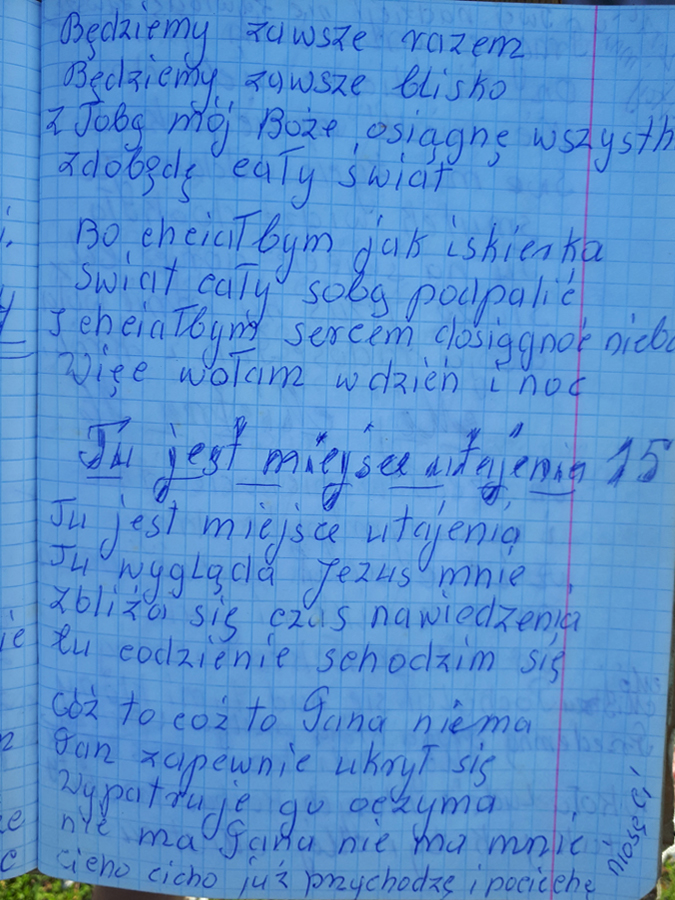 Będziemy zawsze razem
Będziemy zawsze blisko
z Tobą mój Boże, osiągnę wszystk
zdobędę cały świat
Bo chciałbym jak iskierka
świat cały sobą podpalić
I chciałbym sercem dosięgnąć nieba
Więc wołam w dzień i noc
Tu jest miejsce utajenia 15
Tu jest miejsce utajenia
Tu wygląda Jezus mnie
zbliża się czas nawiedzenia
tu codzienie schodzim się
cóż to cóż to Pana niema
Pan zapewnie ukrył się
Wypatruje go oczyma
nie ma Pana nie ma mnie
cicho cicho już przychodzę i pociechę
niosę ci